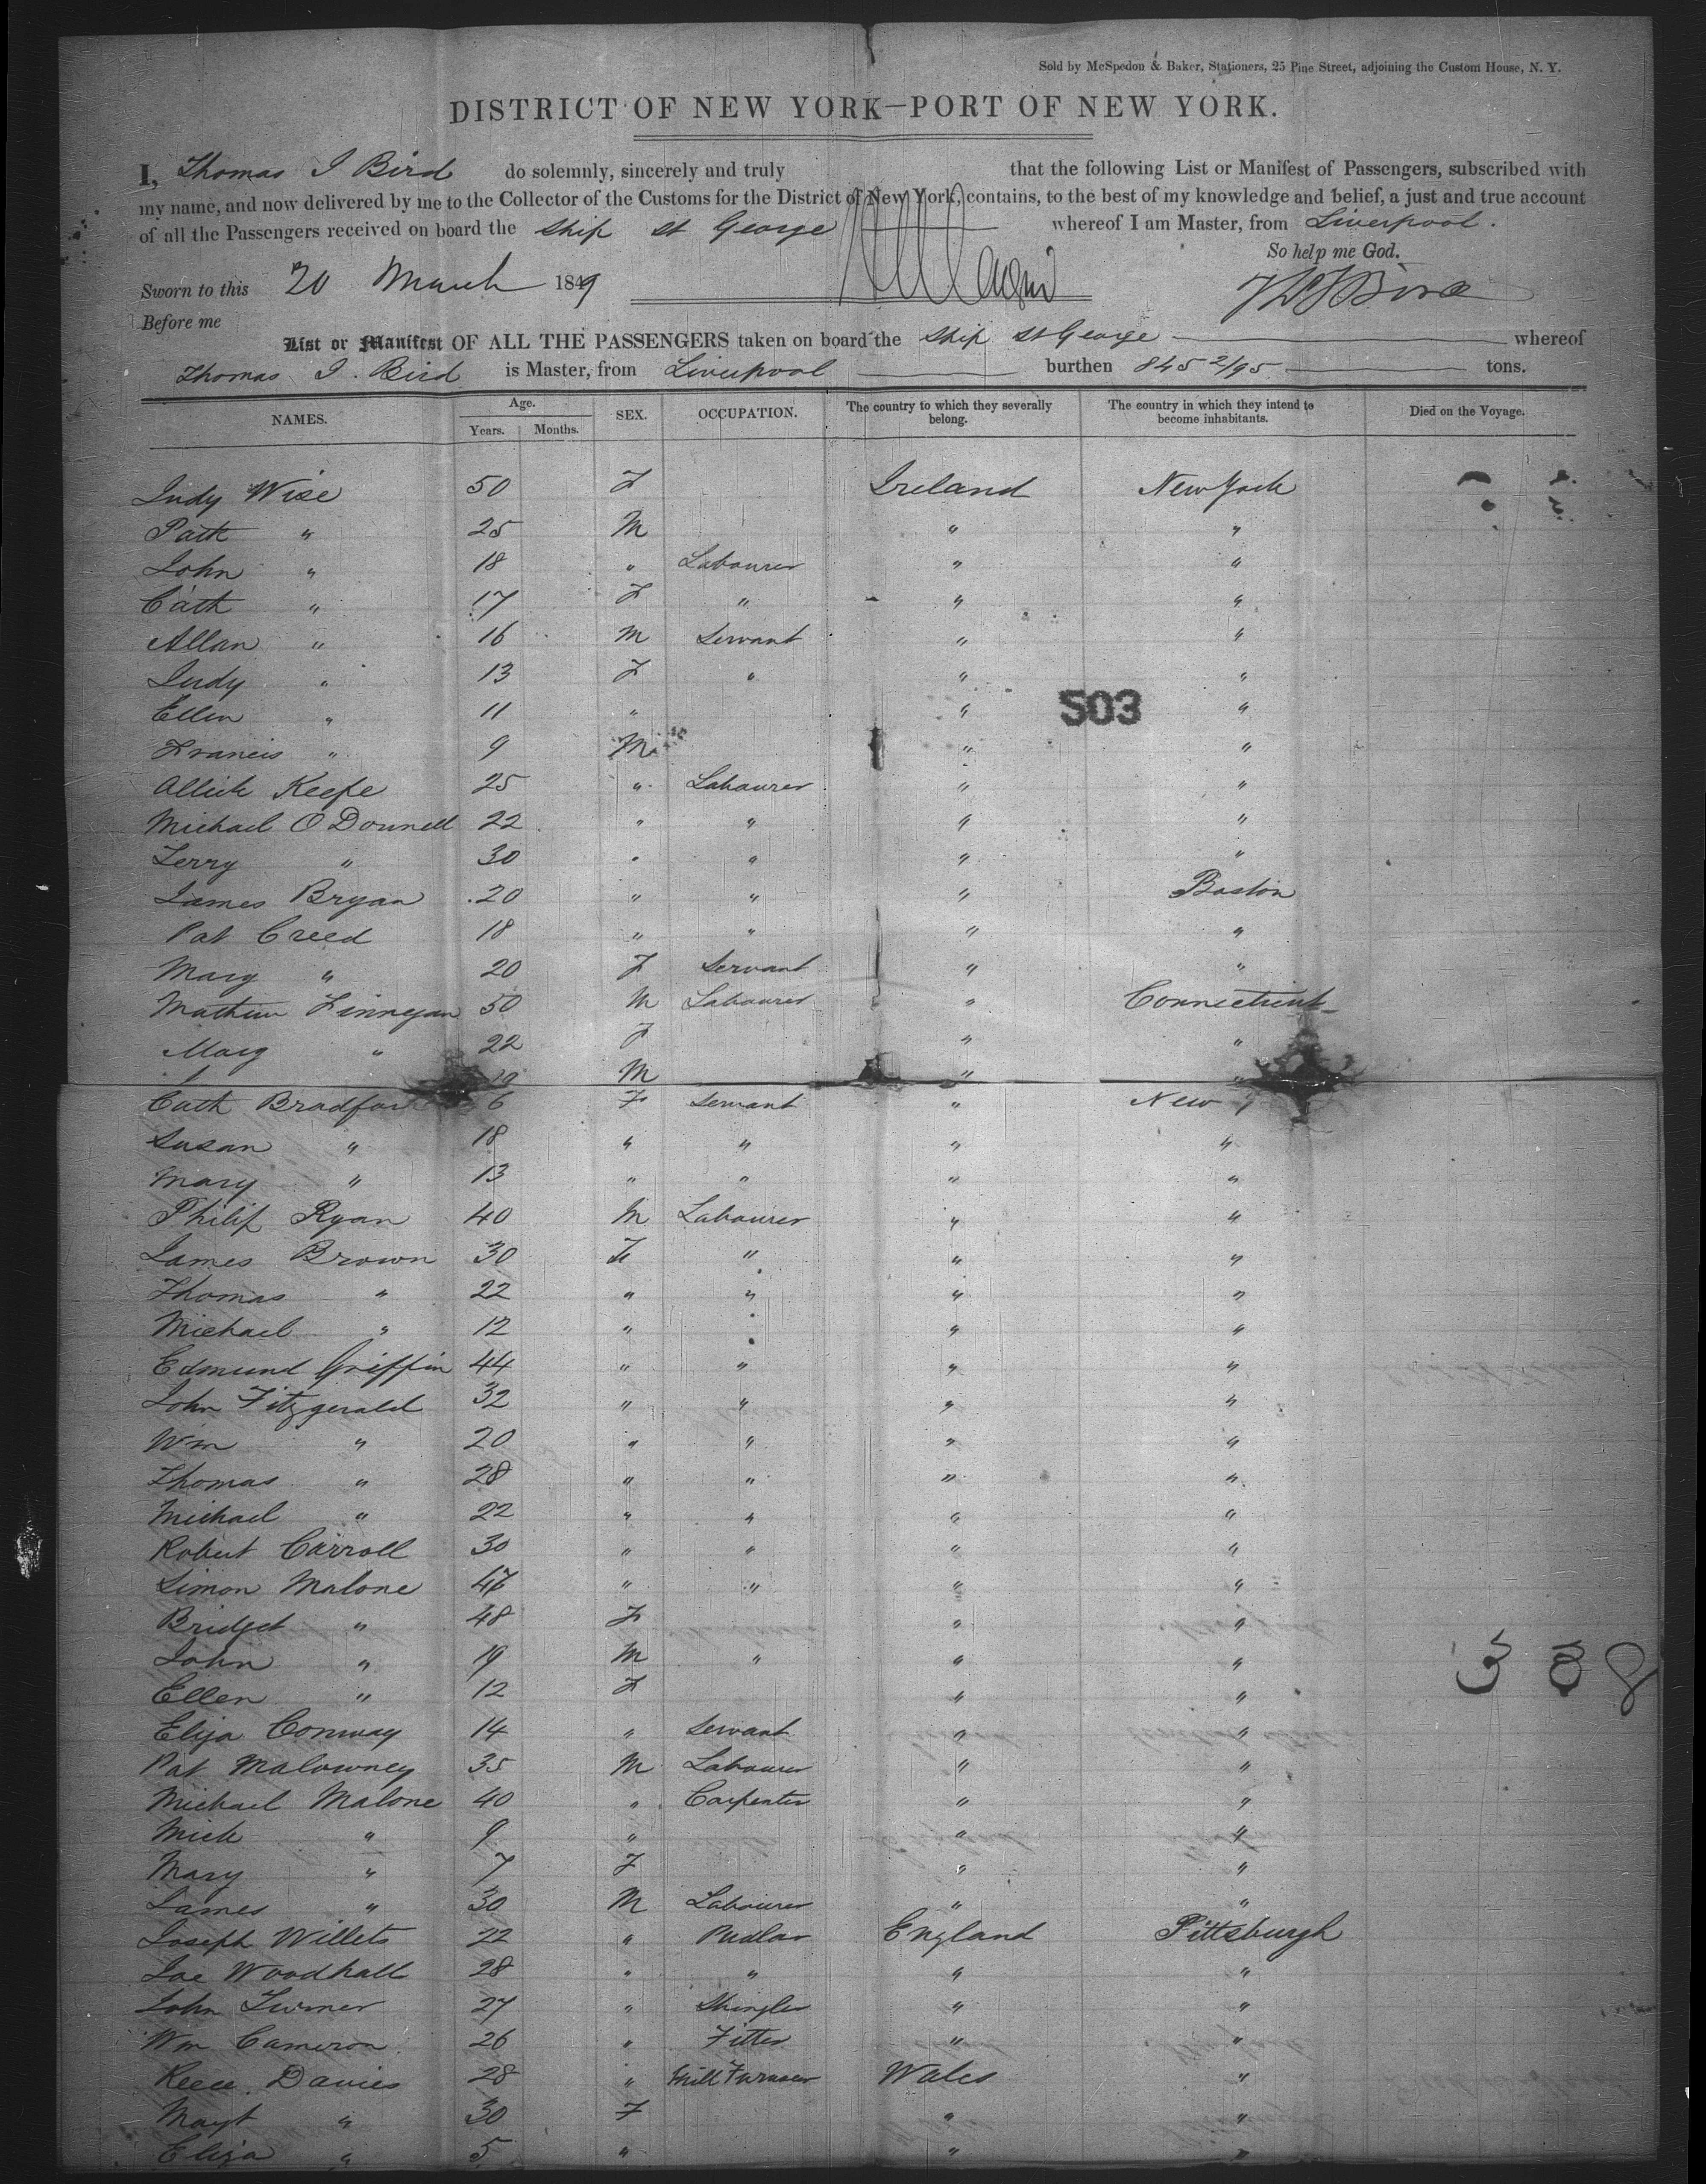 Sold by McSpedon & Baker, Stationers, 25 Pine Street, adjoining the Custom House, N. Y.
DISTRICT OF NEW YORK—PORT OF NEW YORK.
I, Thomas J Bird do solemnly, sincerely and truly that the following List or Manifest of Passengers, subscribed with
my name, and now delivered by me to the Collector of the Customs for the District of New York, contains, to the best of my knowledge and belief, a just and true account
of all the Passengers received on board the Ship St George whereof I am Master, from Liverpool.
So help me God.
Sworn to this 20 March 1849
Before me
List or Manifest OF ALL THE PASSENGERS taken on board the Ship St George whereof
Thomas J. Bird is Master, from Liverpool burthen 845 2/95 tons.
NAMES. Age. Years. Months. SEX. OCCUPATION. The country to which they severally belong. The country in which they intend to become inhabitants. Died on the Voyage.
Judy Wise 50 F Ireland New York
Patk " 25 M " "
John " 18 " Labourer " "
Cath " 17 F " " "
Allan " 16 M Servant " "
Judy " 13 F " " "
Ellen " 11 " " "
503
Francis " 9 M " "
Allick Keefe 25 " Labourer " "
Michael O Donnell 22 " " " "
Terry " 30 " " " "
James Bryan 20 " " " Boston
Pat Creed 18 " " " "
Mary " 20 F Servant " "
Mathew Finnegan 50 M Labourer " Connecticut
Mary " 22 F " "
19 M " "
Cath Bradford 6 F Servant " New
Susan " 18 " " " "
Mary " 13 " " " "
Philip Ryan 40 M Labourer " "
James Brown 30 " " "
Thomas " 22 " " " "
Michael " 12 " " " "
Edmund Griffin 44 " " " "
John Fitzgerald 32 " " " "
Wm " 20 " " " "
Thomas " 28 " " " "
Michael " 22 " " " "
Robert Carroll 30 " " " "
Simon Malone 47 " " " "
Bridget " 48 F " "
John " 19 M " " "
Ellen " 12 F " "
338
Eliza Conway 14 " Servant " "
Pat Malowney 35 M Labourer " "
Michael Malone 40 " Carpenter " "
Mick " 9 " " "
Mary " 7 F " "
James " 30 M Labourer " "
Joseph Willets 22 " Pudlar England Pittsburgh
Joe Woodhall 28 " " " "
John Turner 27 " Shingler " "
Wm Cameron 26 " Fitter " "
Reece Davies 28 " Mill Furnacer Wales "
Mayt " 30 F " "
Eliza " 5 " " "